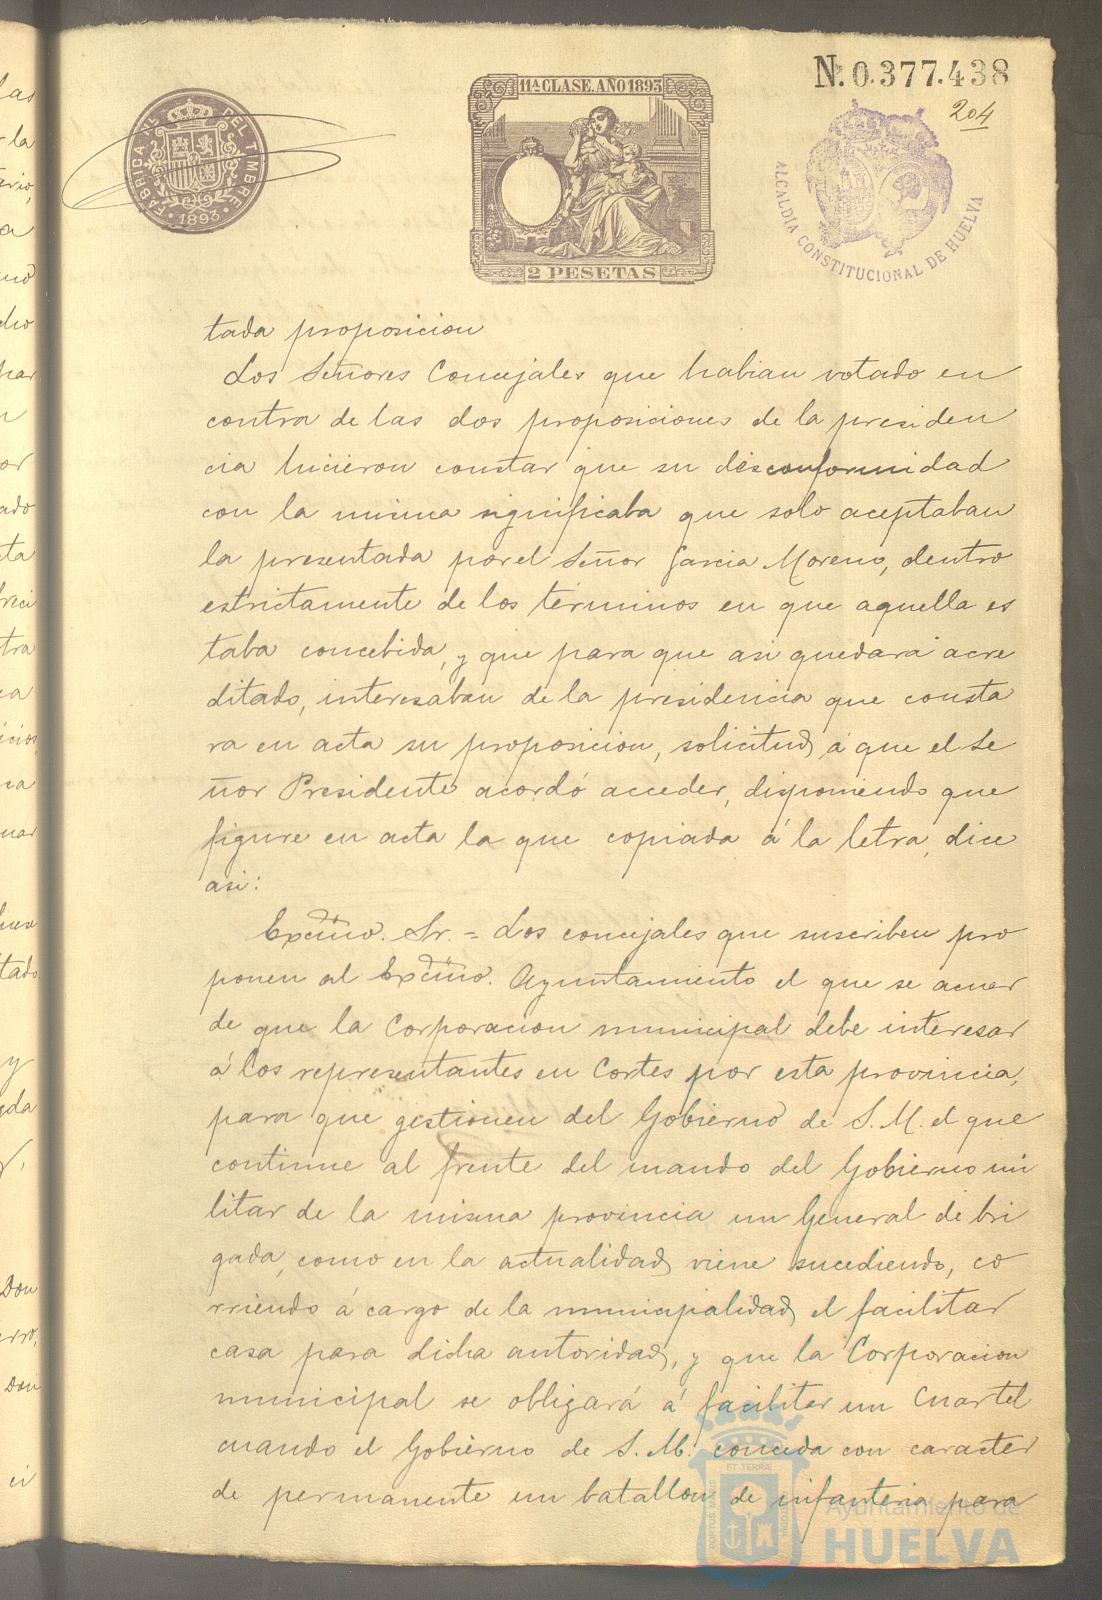 11ª CLASE. AÑO 1893
N. 0.377.438
204
FABRICA NAL DEL TIMBRE
1893
2 PESETAS
ALCALDÍA CONSTITUCIONAL DE HUELVA
tada proposicion
Los Señores Concejales que habian votado en
contra de las dos proposiciones de la presiden
cia hicieron constar que su disconformidad
con la misma significaba que solo aceptaban
la presentada por el Señor Garcia Moreno, dentro
estrictamente de los términos en que aquella es
taba concebida, y que para que asi quedara acre
ditado, interesaban de la presidencia que consta
ra en acta su proposicion, solicitud á que el Se
ñor Presidente acordó acceder, disponiendo que
figure en acta la que copiada á la letra, dice
asi:
Excmo. Sr. = Los concejales que suscriben pro
ponen al Excmo. Ayuntamiento el que se acuer
de que la Corporacion municipal debe interesar
á los representantes en Cortes por esta provincia,
para que gestionen del Gobierno de S. M. el que
continue al frente del mando del Gobierno mi
litar de la misma provincia un General de bri
gada, como en la actualidad viene sucediendo, co
rriendo á cargo de la municipalidad el facilitar
casa para dicha autoridad, y que la Corporacion
municipal se obligará á facilitar un Cuartel
cuando el Gobierno de S. M. conceda con caracter
de permanente un batallon de infanteria para
Ayuntamiento de
HUELVA